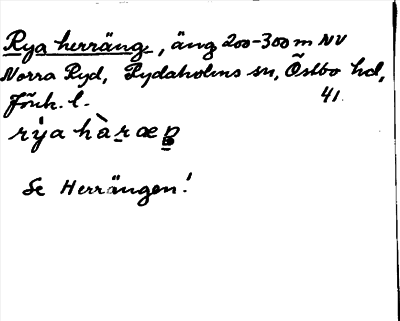 Rya herräng, äng 200-300 m NV
Norra Ryd, Rydaholms sn, Östbo hd,
Jönk. l. 41.
rýa hàræŋ
Se Herrängen!